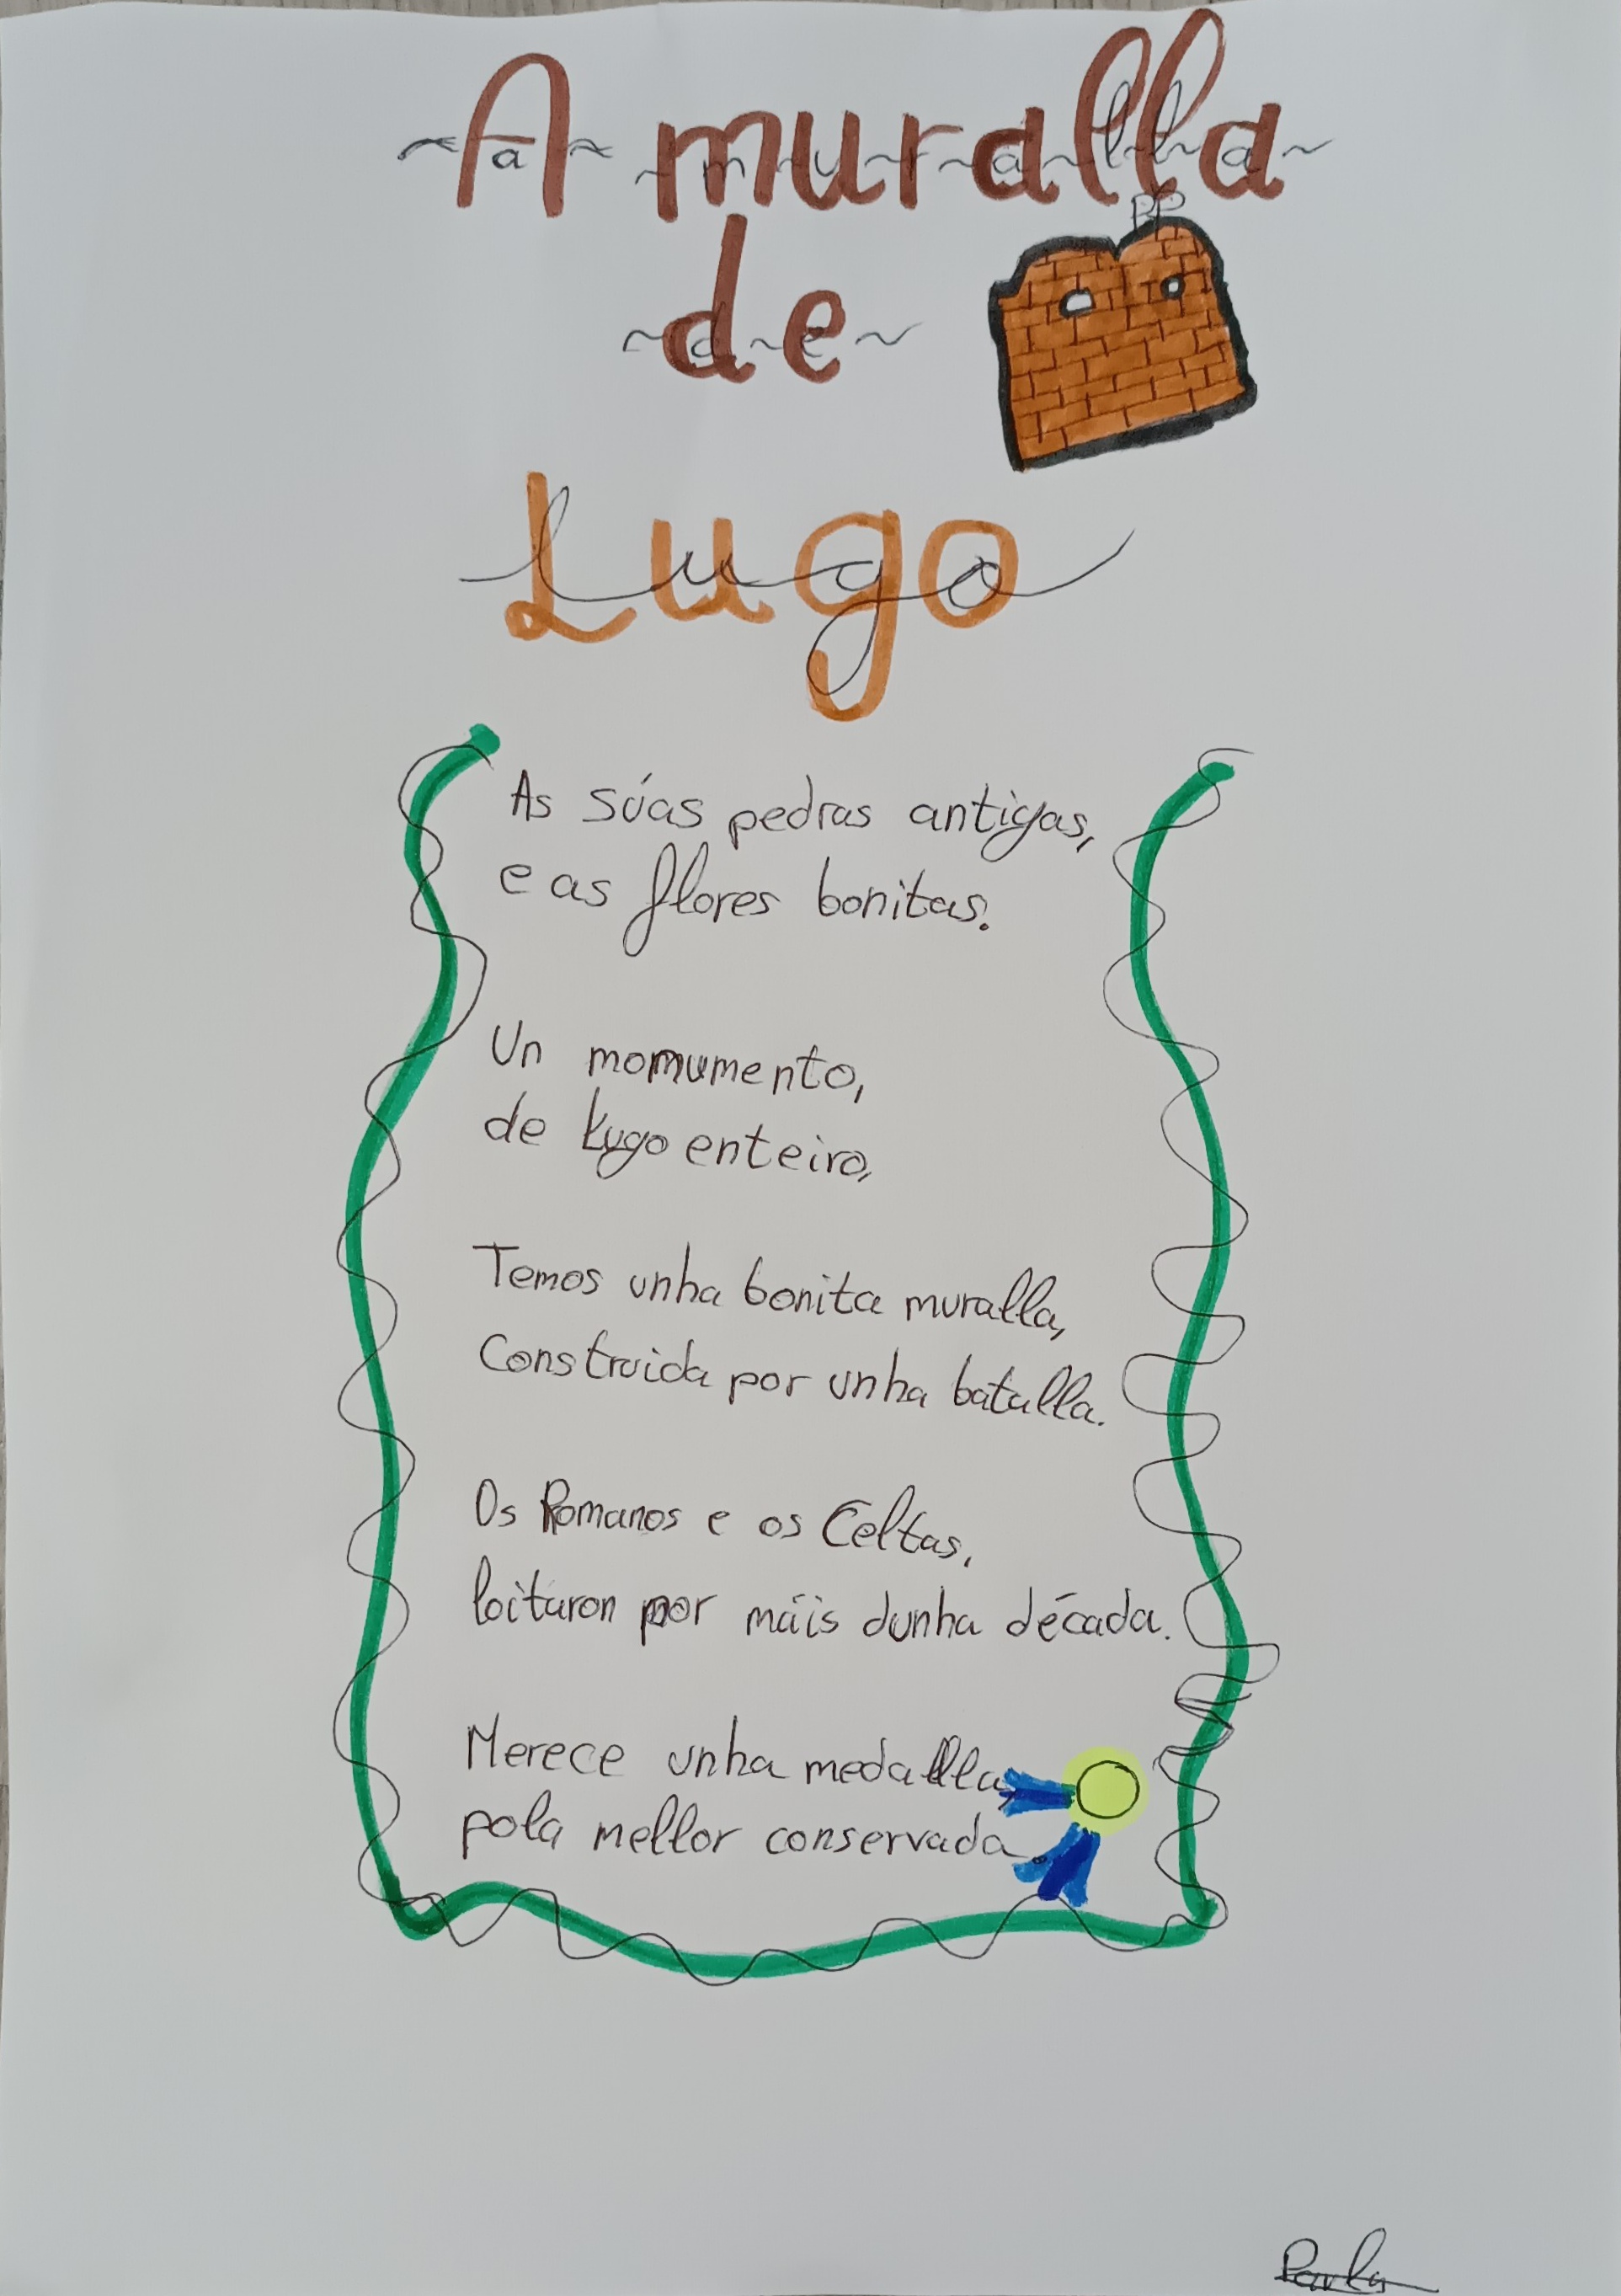 A muralla
de
Lugo
As súas pedras antigas,
e as flores bonitas.
Un momumento,
de Lugo enteiro,
Temos unha bonita muralla,
Construida por unha batalla.
Os Romanos e os Celtas,
loitaron por máis dunha década.
Merece unha medalla,
pola mellor conservada.
Paula